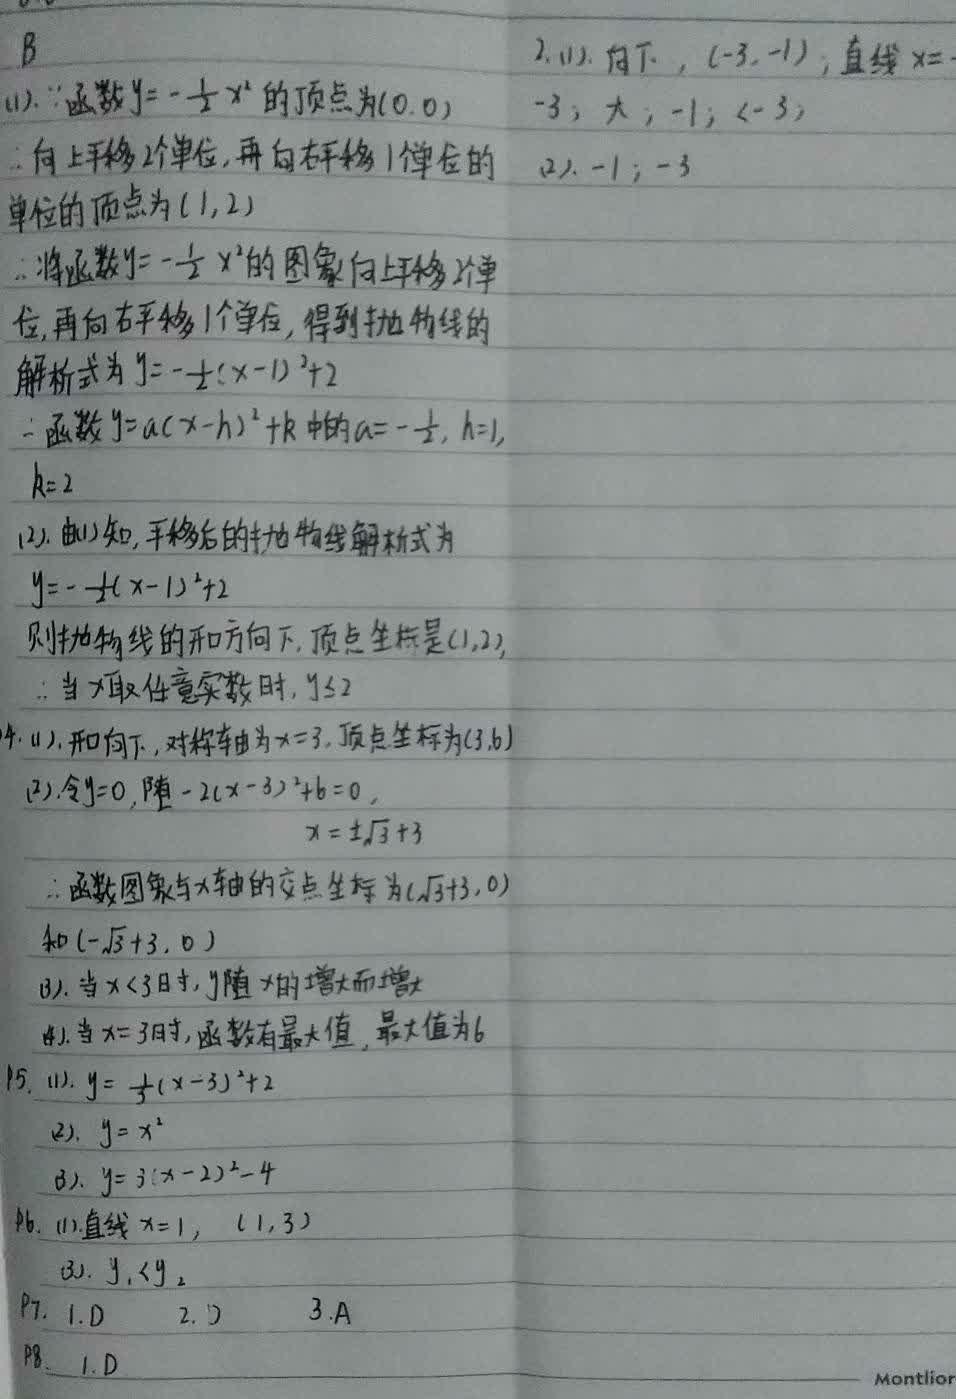 B
(1). ∵函数y=-1/2x²的顶点为(0.0)
∴向上平移2个单位,再向右平移1个单位的
单位的顶点为(1,2)
∴将函数y=-1/2x²的图象向上平移2个单
位,再向右平移1个单位,得到抛物线的
解析式为y=-1/2(x-1)²+2
∴函数y=a(x-h)²+k中的a=-1/2,h=1,
k=2
(2).由(1)知,平移后的抛物线解析式为
y=-1/2(x-1)²+2
则抛物线的开口方向下,顶点坐标是(1,2),
∴当x取任意实数时,y≤2
4.(1).开口向下,对称轴为x=3.顶点坐标为(3,6)
(2).令y=0,随-2(x-3)²+6=0,
x=±√3+3
∴函数图象与x轴的交点坐标为(√3+3,0)
和(-√3+3,0)
(3).当x<3时,y随x的增大而增大
(4).当x=3时,函数有最大值,最大值为6
P5. (1). y=1/3(x-3)²+2
(2). y=x²
(3). y=3(x-2)²-4
P6. (1).直线x=1, (1,3)
(3). y₁<y₂
P7. 1.D 2.D 3.A
P8. 1.D
2.(1).向下,(-3,-1);直线x=-
-3;大;-1;<-3;
(2).-1;-3
Montlior